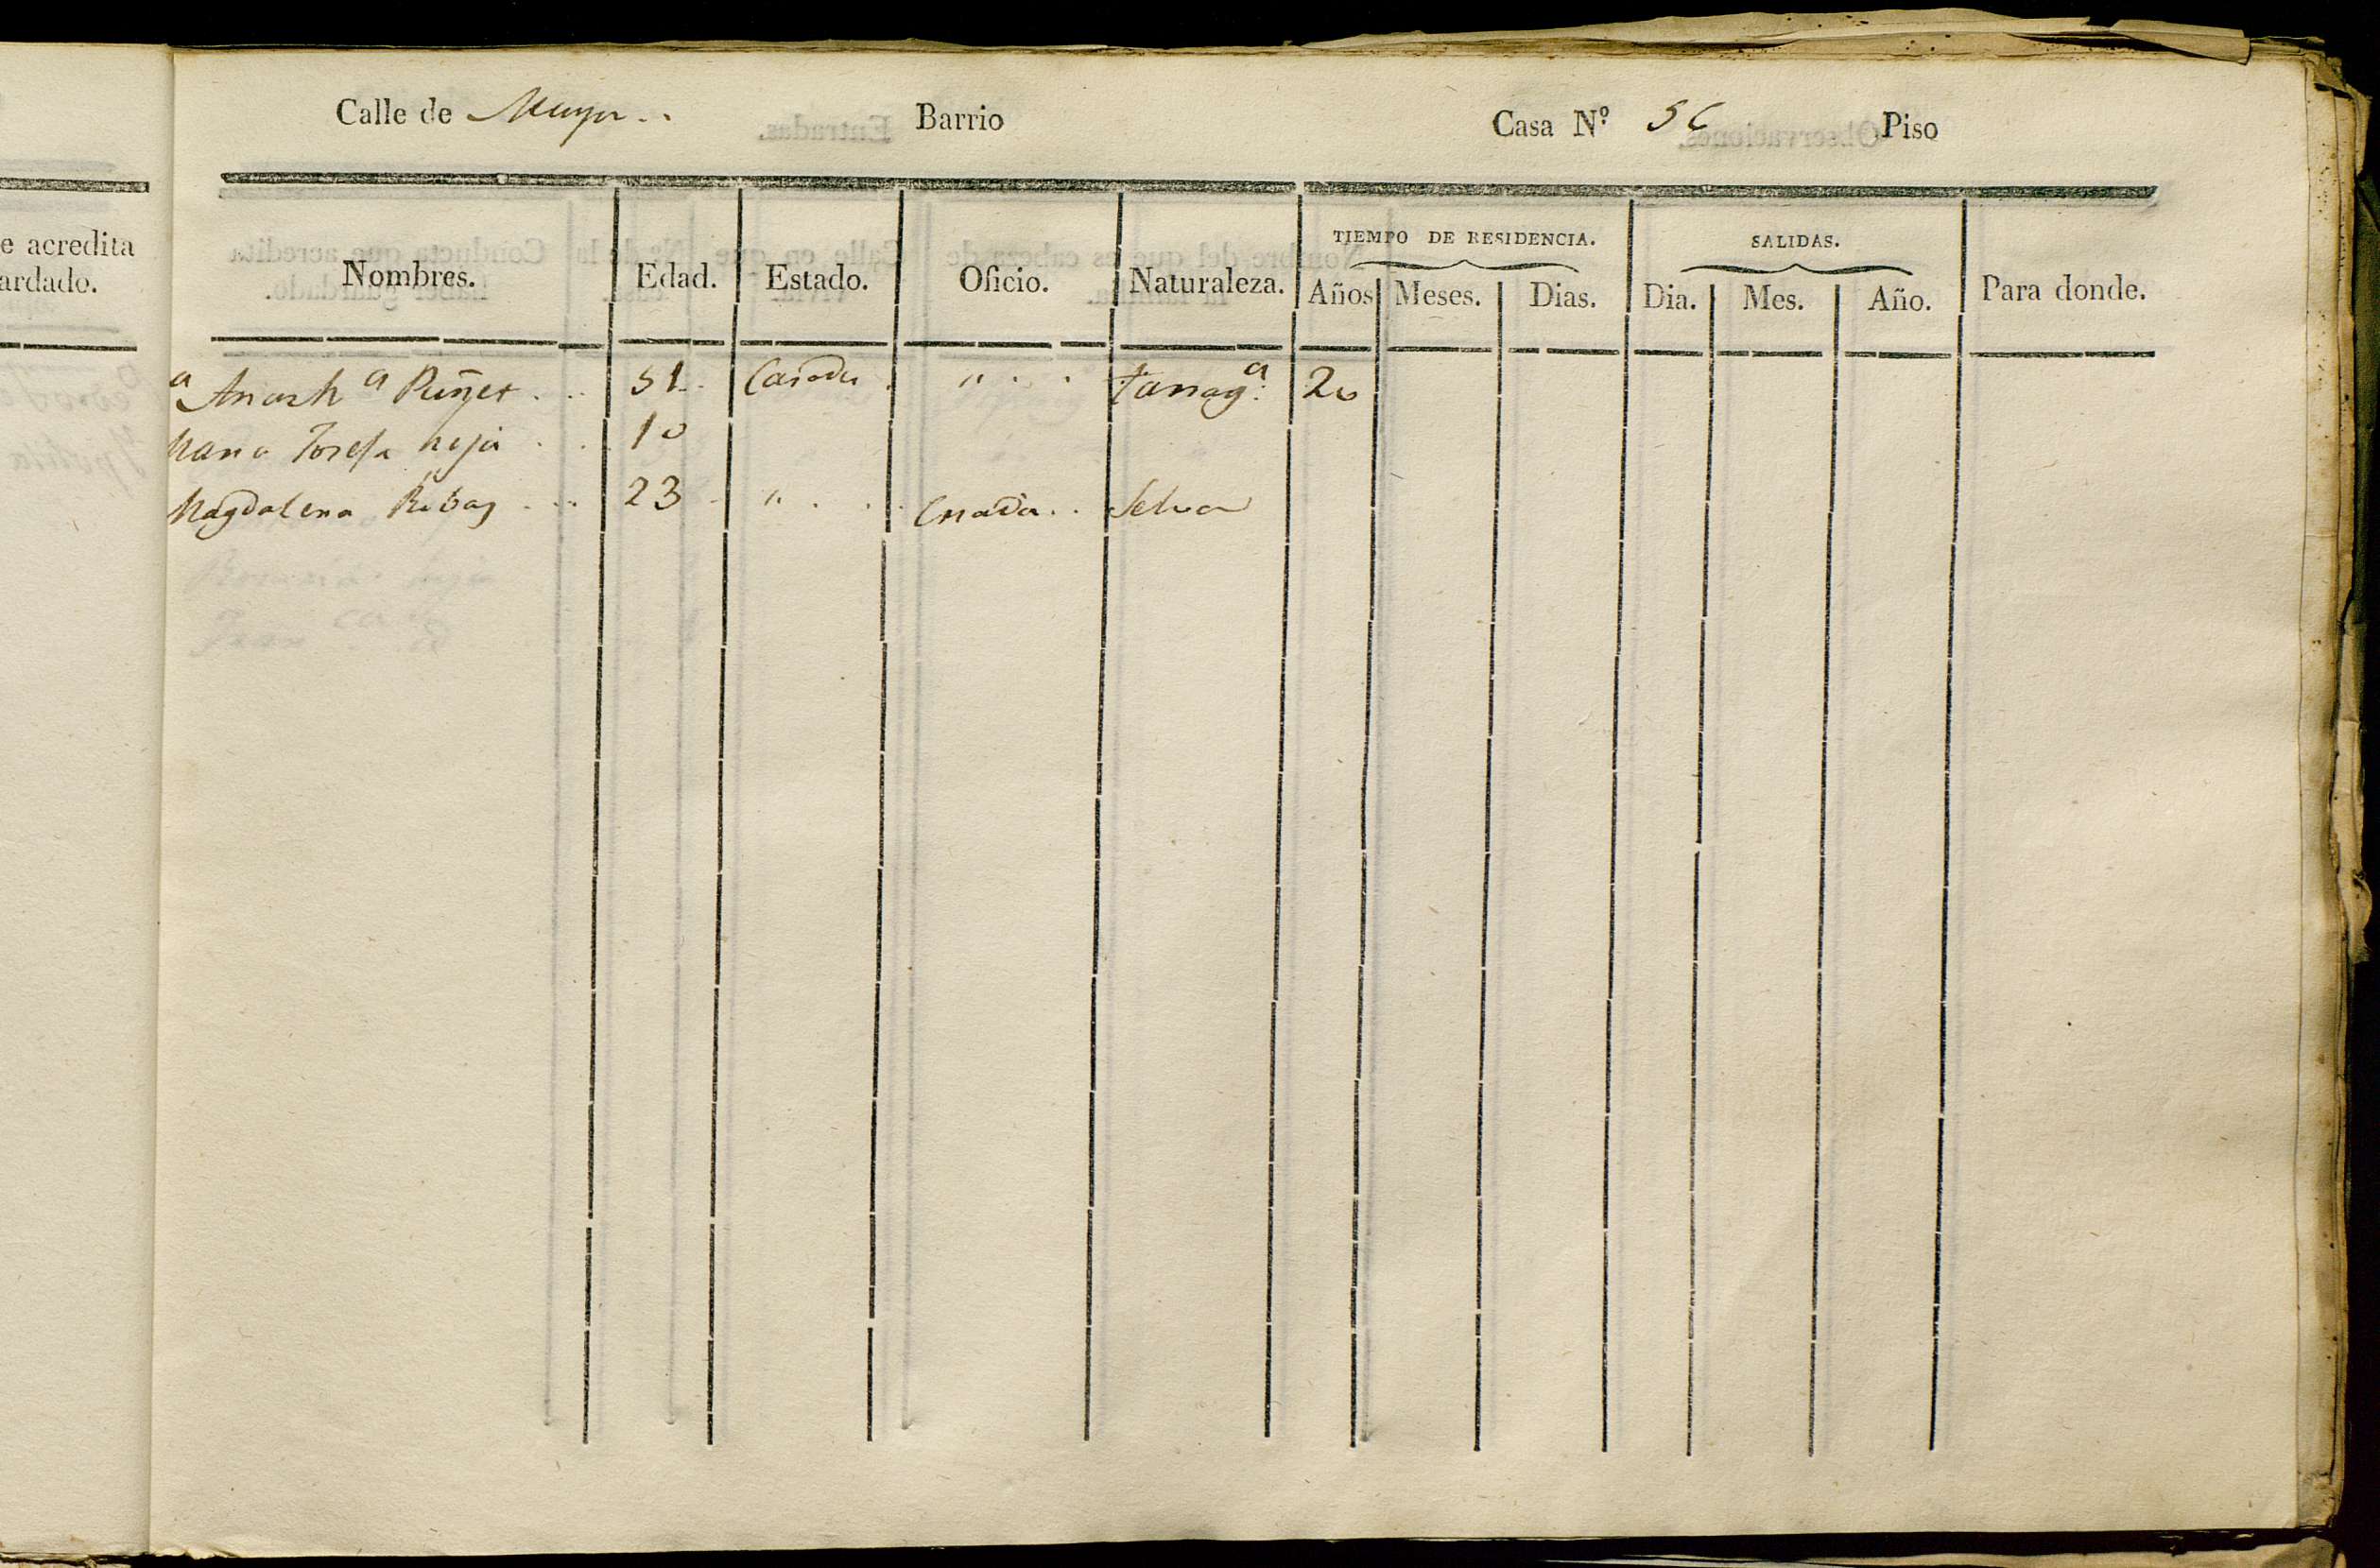 e acredita
ardado.
Calle de Mayor.. Barrio Casa Nº 56 Piso
TIEMPO DE RESIDENCIA. SALIDAS.
Nombres. Edad. Estado. Oficio. Naturaleza. Años Meses. Dias. Dia. Mes. Año. Para donde.
51. Casada. " . . Tarragª: 20
Maria Josefa hija . . 10
Magdalena Ribas ... 23 " . . . Criada.. Selva